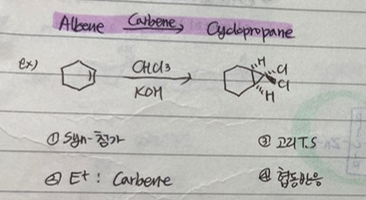 Alkene Carbene Cyclopropane
ex) CHCl3
KOH
H Cl
Cl
H
① Syn-첨가 ③ 고리 T.S
② E+ : Carbene ④ 협동반응